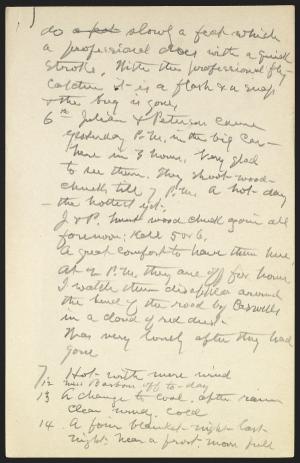 do slowly a feat which
a professional does with a quick
stroke. With the professional fly-
catcher it is a flash & a snap
& the bug is gone.
6th Julian & Peterson came
yesterday P.M. in the big car-
here in 3 hours. Very glad
to see them. They shoot wood-
chucks till 7 P.M. A hot day
- the hottest yet.
J & P. hunt wood chuck again all
forenoon; kill 5 or 6.
A great comfort to have them here
At 2 P.M. they are off for home
I watch them disappear around
the bend of the road by Caswells
in a cloud of red dust.
Was very lonely after they had
gone
7, Hot with more wind
12 Miss Barrus off to-day
13 A change to cool, after rain
clear windy, cold
14. A four blanket-night last
night, near a frost. moon full